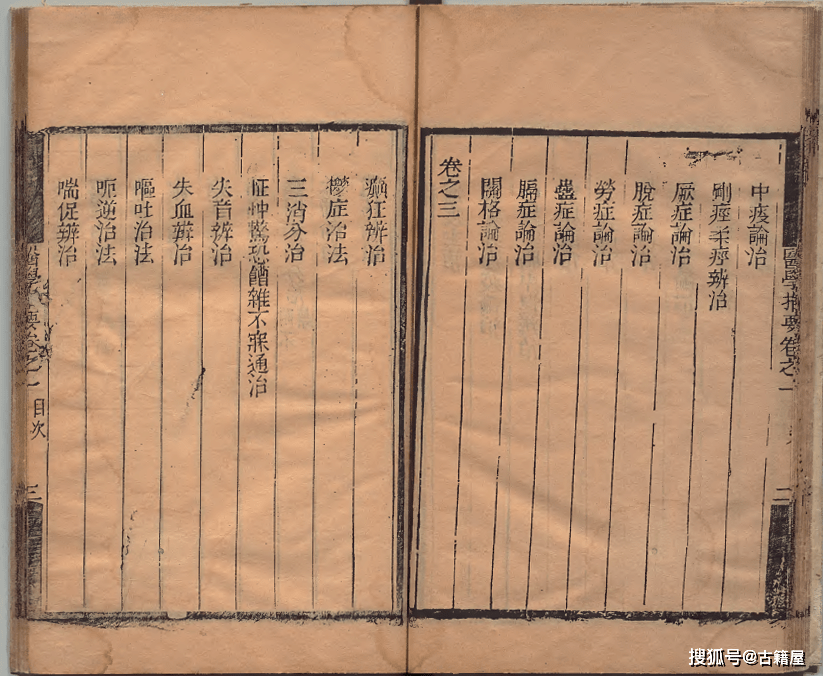 醫學指要卷之一
二
中痰論治
剛痙柔痙辨治
厥症論治
脫症論治
勞症論治
蠱症論治
膈症論治
關格論治
卷之三
癲狂辨治
鬱症治法
三消分治
怔忡驚恐嘈雜不寐通治
失音辨治
失血辨治
嘔吐治法
呃逆治法
喘促辨治
醫學 要卷之一 目次 三
搜狐号@古籍屋